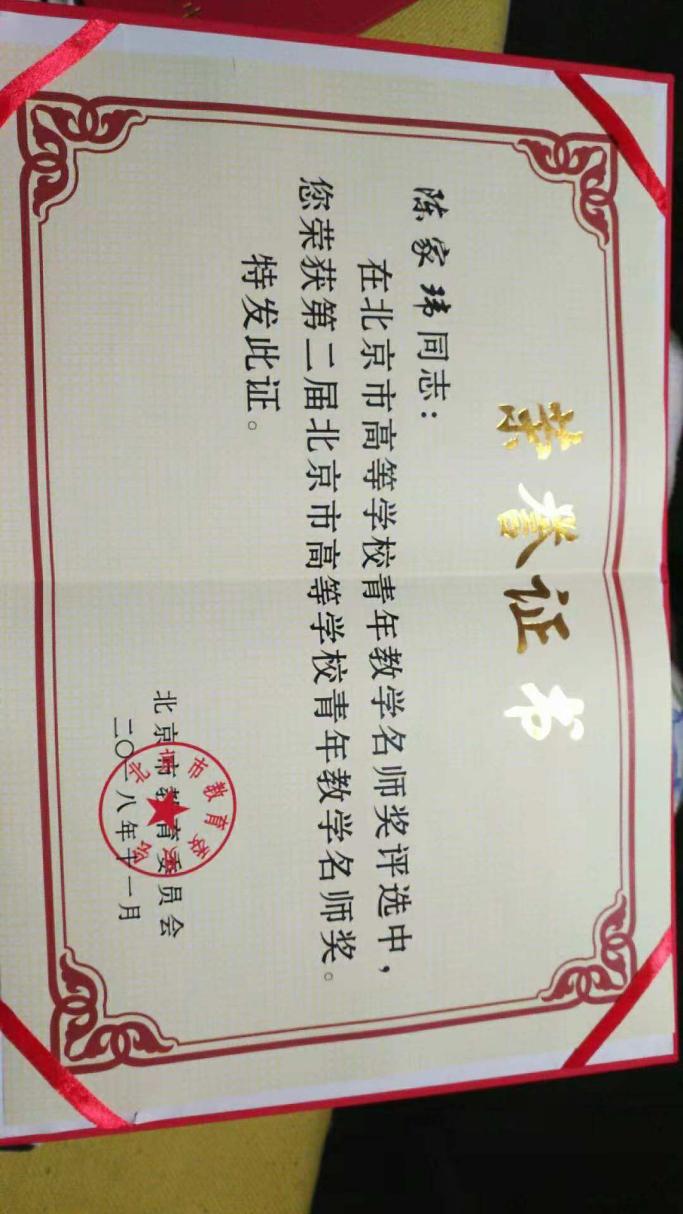 荣誉证书
陈家玮同志：
在北京市高等学校青年教学名师奖评选中，
您荣获第二届北京市高等学校青年教学名师奖。
特发此证。
北京市教育委员会
二〇一八年十一月